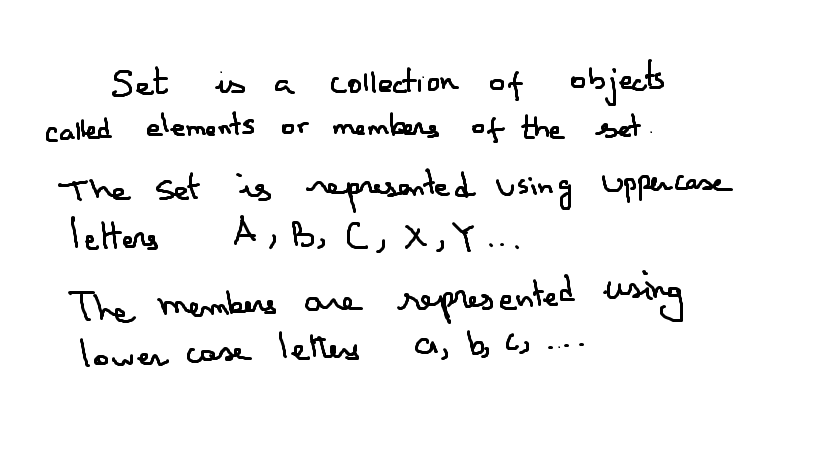 Set is a collection of objects
called elements or members of the set.
The set is represented using uppercase
letters A, B, C, X, Y ...
The members are represented using
lower case letters a, b, c, ....